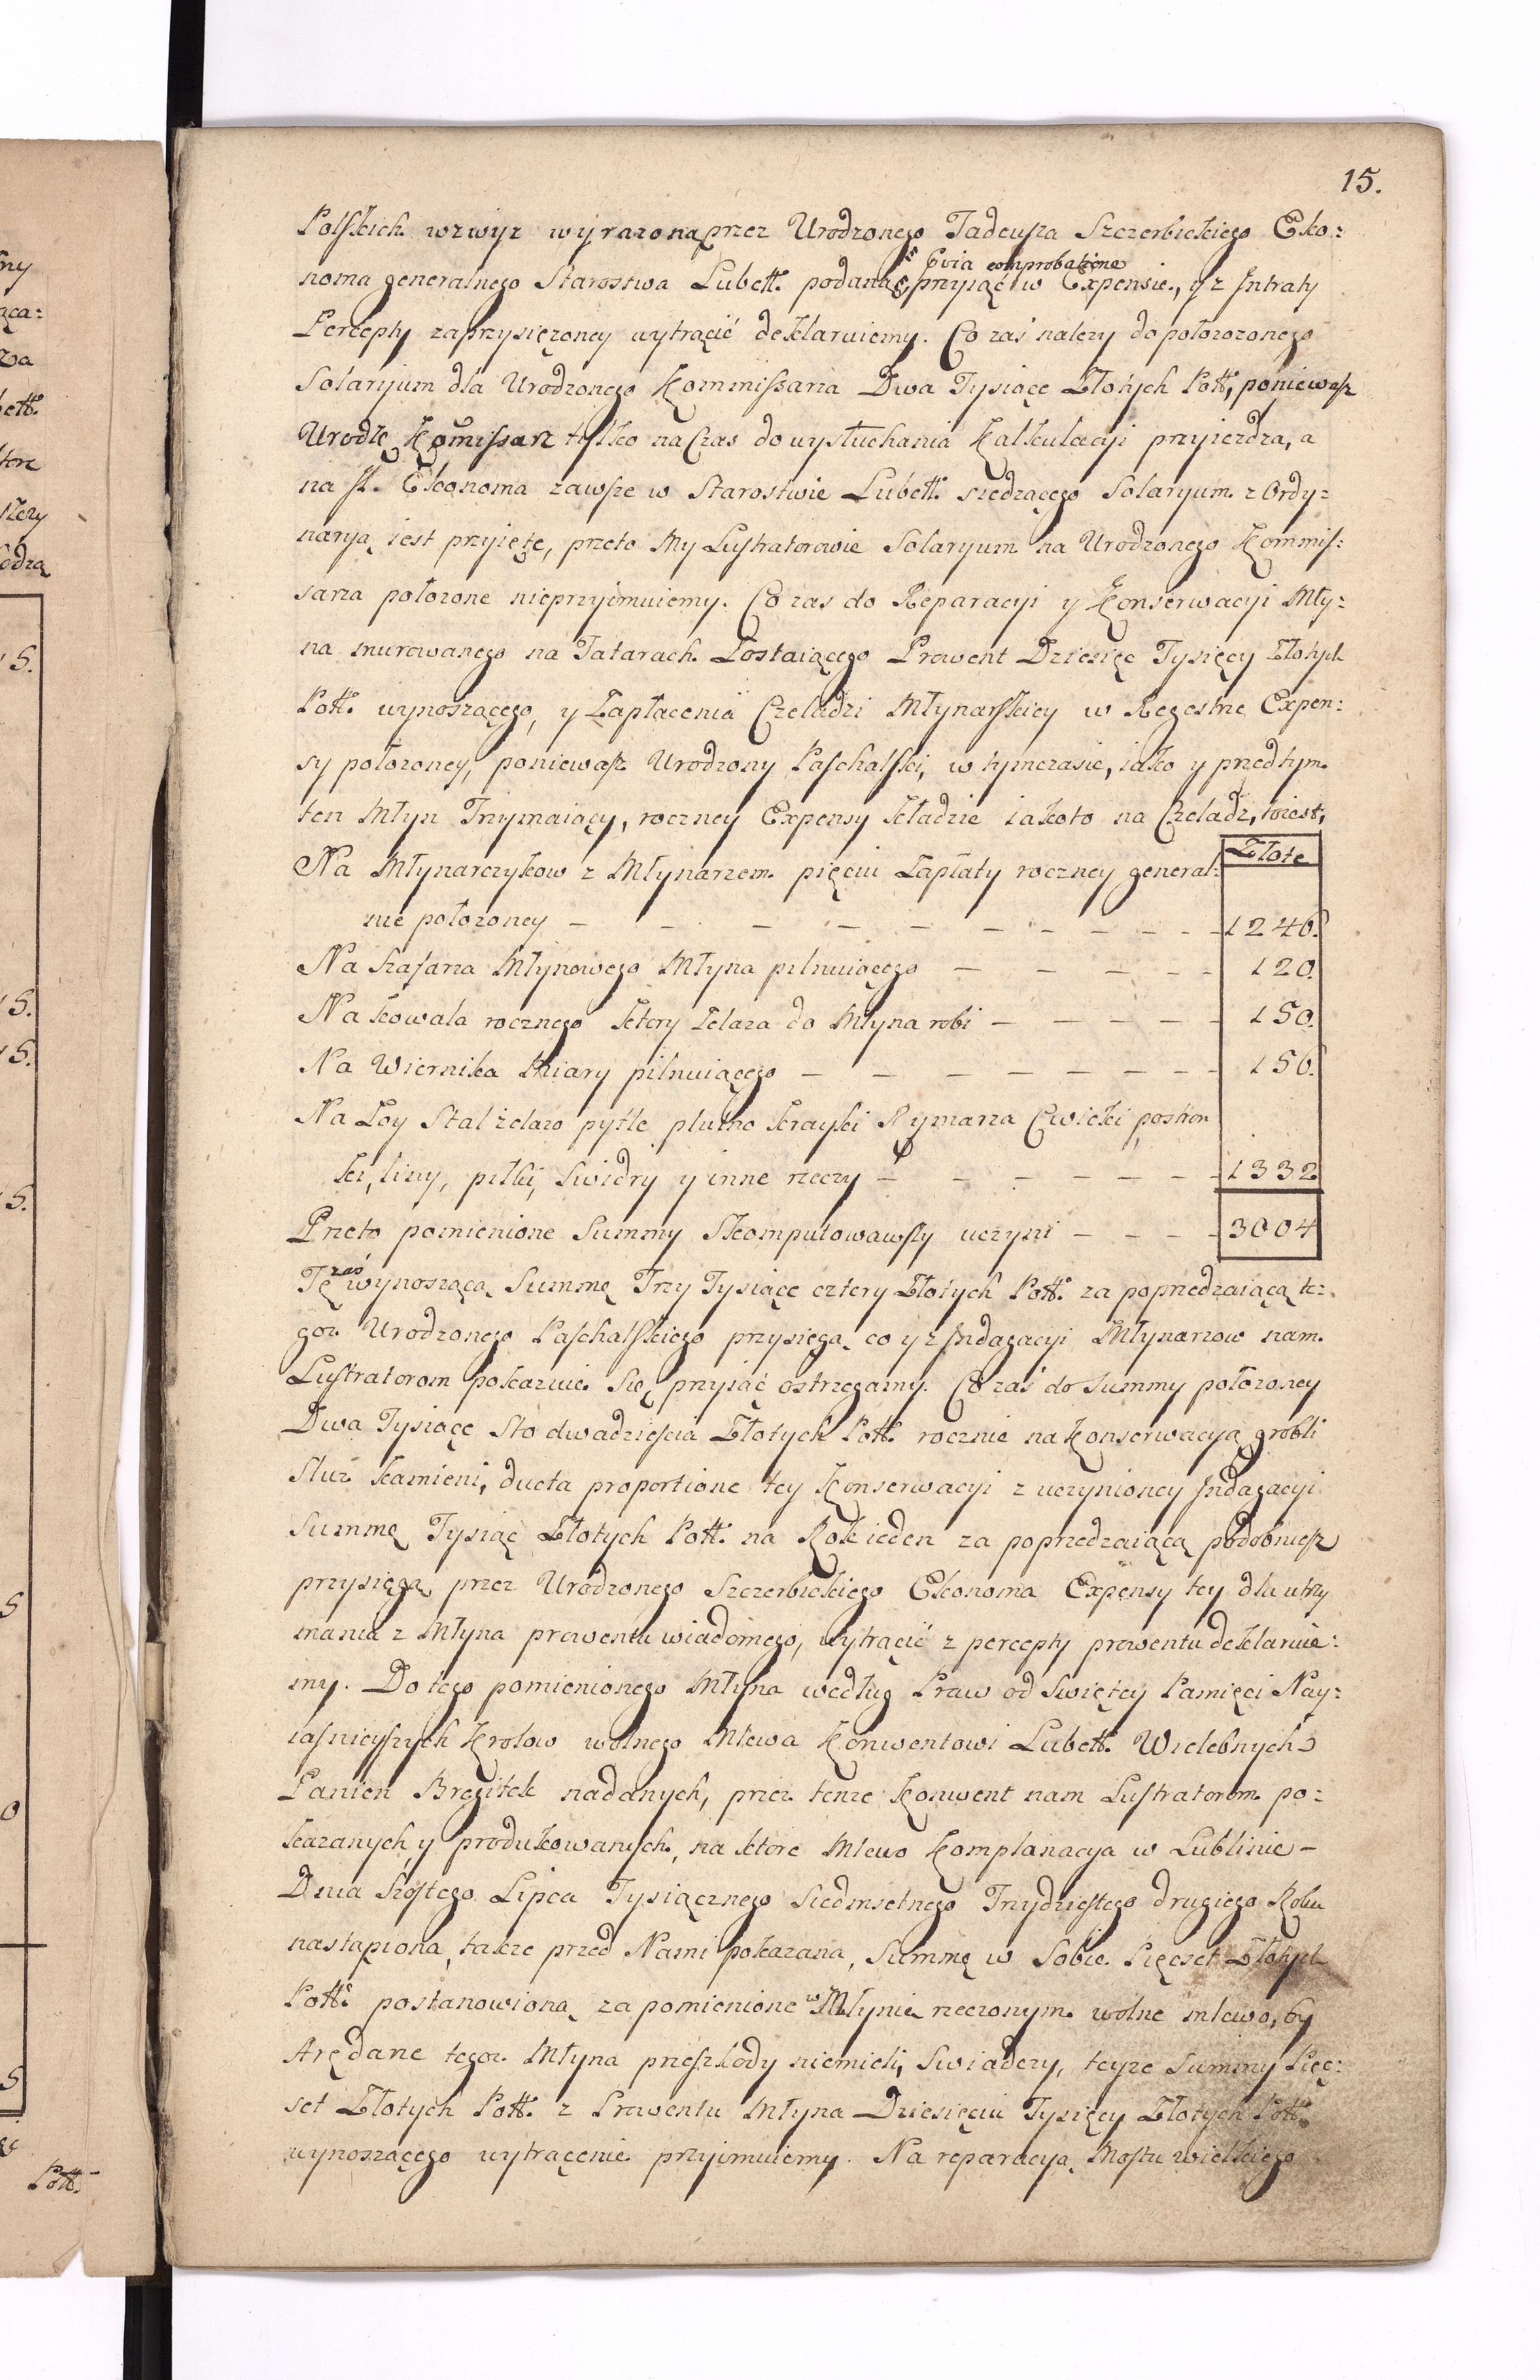 15.
Polskich wzwyż wyrazoną przez Urodzonego Tadeusza Szczerbickiego Eko:
comprobatione
noma generalnego Starostwa Lubelł. podaną przyiąć w Expensie, y z Intraty
Percepty zaprzysiężoney wytrącić deklaruiemy. Co zaś nalezy do położonego
Solaryum dla Urodzonego Kommissarza Dwa Tysiące Złotych Poll., poniewasz
Urodzĕ Komissarz tylko na Czas do wysłuchania Kalkulacyi przyiezdza, a
na Ekonoma zawsze w Starostwie Lubell. siedzącego Solaryum z Ordy:
naryą iest przyięte, przeto My Lustratorowie Solaryum na Urodzonego Kommis:
sarza położone nieprzyimuiemy. Co zas do Reparacyi y Konserwacyi Mły:
na murowanego na Tatarach Zostaiącego Prowent Dziesięć Tysięcy Złotych
Poll. wynoszącego, y Zapłacenia Czeladzi Młynarskiey w Regestrze Expen:
sy położoney, poniewasz Urodzony Paschalski, w tymczasie, iako y przedtym
ten Młyn Trzymaiący, roczney Expensy kładzie iakoto na Czeladz, toiest,
Złote
Na Młynarczykow z Młynarzem pięciu Zapłaty roczney general:
nie położoney — — — — — — — — — 1246.
Na Szafarza Młynowego Młyna pilnuiącego — — — — — 120.
Na kowala rocznego ktory Zelaza do Młyna robi — — — — — 150.
Na Wiernika Miary pilnuiącego — — — — — — — — 156.
Na Łoy Stal żelazo pytle płutno krayki Rymarza Cwieki postron
ki, liny, piłki, Swidry y inne rzeczy — — — — — — — 1332
Przeto pomienione Summy Skomputowawszy uczyni — — — — 3004
Tę zaś wynoszącą Summę Trzy Tysiące cztery Złotych Poll. za poprzedzaiącą te:
goz Urodzonego Paschalskiego przysięgą co y z Indagacyi Młynarzow nam
Lustratorom pokazuie Się, przyiąć ostrzegamy. Co zaś do Summy położoney
Dwa Tysiące Sto dwadzieścia Złotych Poll. rocznie na Konserwacyą grobli
Sluz kamieni, ducta proportione tey Konserwacyi z uczynioney Indagacyi
Summę Tysiąc Złotych Poll. na Rok ieden za poprzedzaiącą podobniesz
przysięgą przez Urodzonego Szczerbickiego Ekonoma Expensy tey dla utrzy
mania z Młyna prowentu wiadomego, wytrącić z percepty prowentu deklaruie:
my. Do tego pomienionego Młyna według Praw od Swiętey Pamięci Nay:
iasnieyszych Krolow wolnego Mlewa Konwentowi Lubell. Wielebnych
Panien Brygitek nadanych, przez tenze Konwent nam Lustratorom po:
kazanych y produkowanych, na ktore Mlewo Komplanacya w Lublinie —
Dnia Szostego Lipca Tysiącznego Siedmsetnego Trzydziestego drugiego Roku
nastąpiona, takze przed Nami pokazana, Summę w Sobie Pięcset Złotych
Poll. postanowioną za pomienione w Młynie rzeczonym wolne mlewo, by
Arędarze tegoz Młyna przeszkody niemieli, Swiadczy, teyze Summy Pięc:
set Złotych Poll. z Prowentu Młyna Dziesięciu Tysięcy Złotych Poll.
wynoszącego wytrącenie przyimuiemy. Na reparacyą Mostu wielkiego